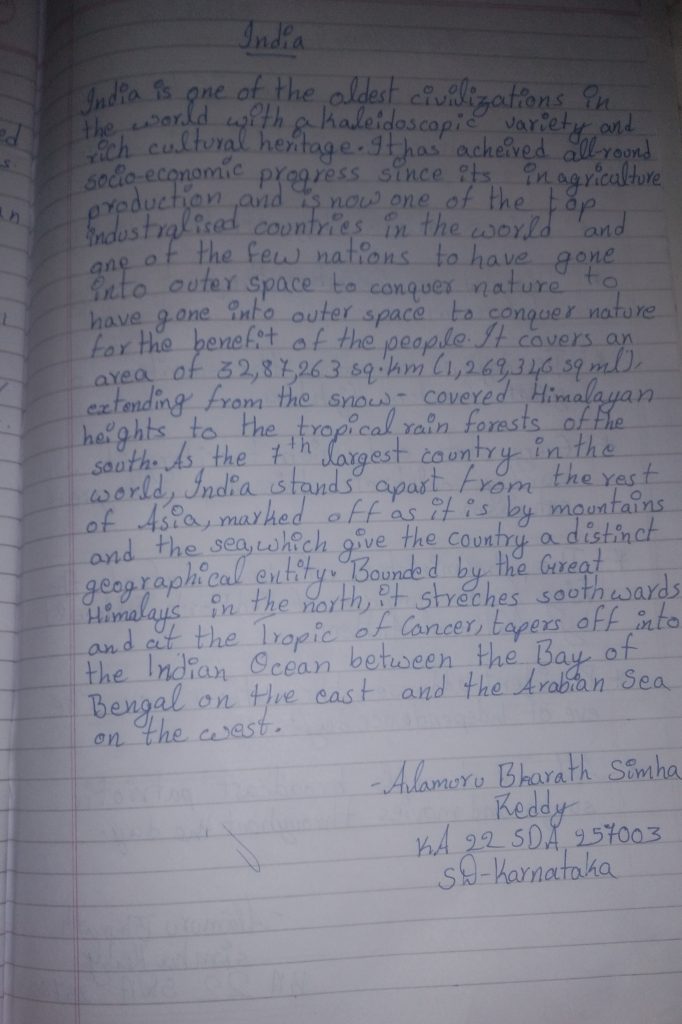 India
India is one of the oldest civilizations in
the world with a kaleidoscopic variety and
rich cultural heritage. It has acheived all-round
socio-economic progress since its in agriculture
production and is now one of the top
industralised countries in the world and
one of the few nations to have gone
into outer space to conquer nature to
have gone into outer space to conquer nature
for the benefit of the people. It covers an
area of 32,87,263 sq.km (1,269,346 sq ml),
extending from the snow-covered Himalayan
heights to the tropical rain forests of the
south. As the 7th largest country in the
world, India stands apart from the rest
of Asia, marked off as it is by mountains
and the sea, which give the country a distinct
geographical entity. Bounded by the Great
Himalays in the north, it streches southwards
and at the Tropic of Cancer, tapers off into
the Indian Ocean between the Bay of
Bengal on the east and the Arabian Sea
on the west.
- Adamoru Bharath Simha
Reddy
KA 22 SDA 257003
SD-Karnataka